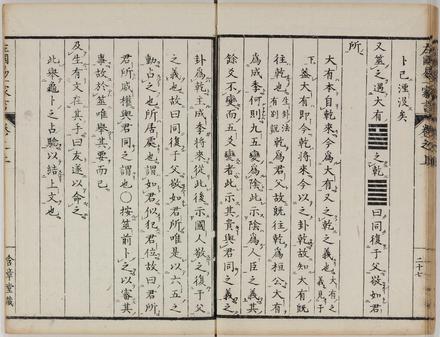 卜已湮沒矣
又筮之遇大有䷍之乾䷀曰同復于父敬如君
所
大有本自乾來今爲大有又之乾之義也
義見于
下 蓋大有即今乾將來今以之卦乾故知大有既
往乾也 生卦法有別説 乾爲君父故既往乾爲桓公大有
爲成季何則九五變爲陰此示陰爲人臣之義其
餘爻不變而五爻變者此示其貴與君同之義之
二十七
卦爲乾主成季將來從此後示國人敬之復于父
之義也故曰同復于父敬如君所唯是以六五之
動占之也所居處也謂如君似犯君位故曰君所
君所威權與君同之謂也〇按筮前卜之以審其
事故於筮唯擧其要而已
及生有文在其手曰友遂以命之
此擧龜卜之占驗以結上文也
含章堂藏